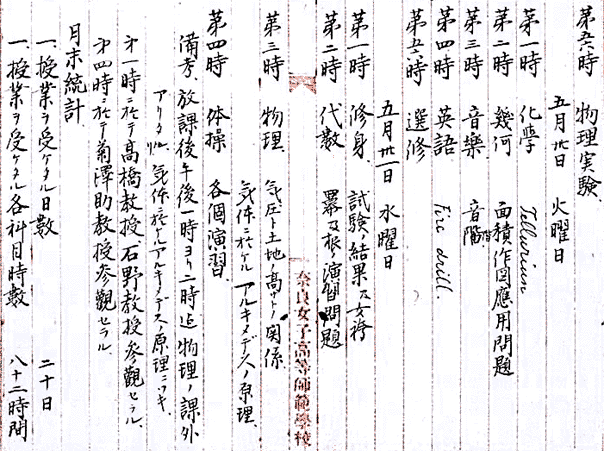 第五六時 物理実験.
五月卅日 火曜日
第一時 化學 Tellurium.
第二時 幾何 面積作図應用問題
第三時 音樂 音階
第四時 英語 Fire drill.
第五六時 選修
五月卅一日 水曜日
第一時 修身. 試験ノ結果及女禮
第二時 代數 羃及根ノ演習問題
奈良女子高等師範學校
第三時 物理. 気圧ト土地ノ高サトノ関係.
気体ニ於ケルアルキメデスノ原理.
第四時 体操 各個演習.
備考. 放課後午後一時ヨリ二時迄物理ノ課外
アリタリ. 気体ニ於ケルアルキメデスノ原理ニツキ.
第一時ニ於テ高橋教授、石野教授参觀セラル.
第四時ニ於テ菊澤助教授参觀セラル.
月末統計
一、授業ヲ受ケタル日數 二十日
一、授業ヲ受ケタル各科目時數 八十二時間